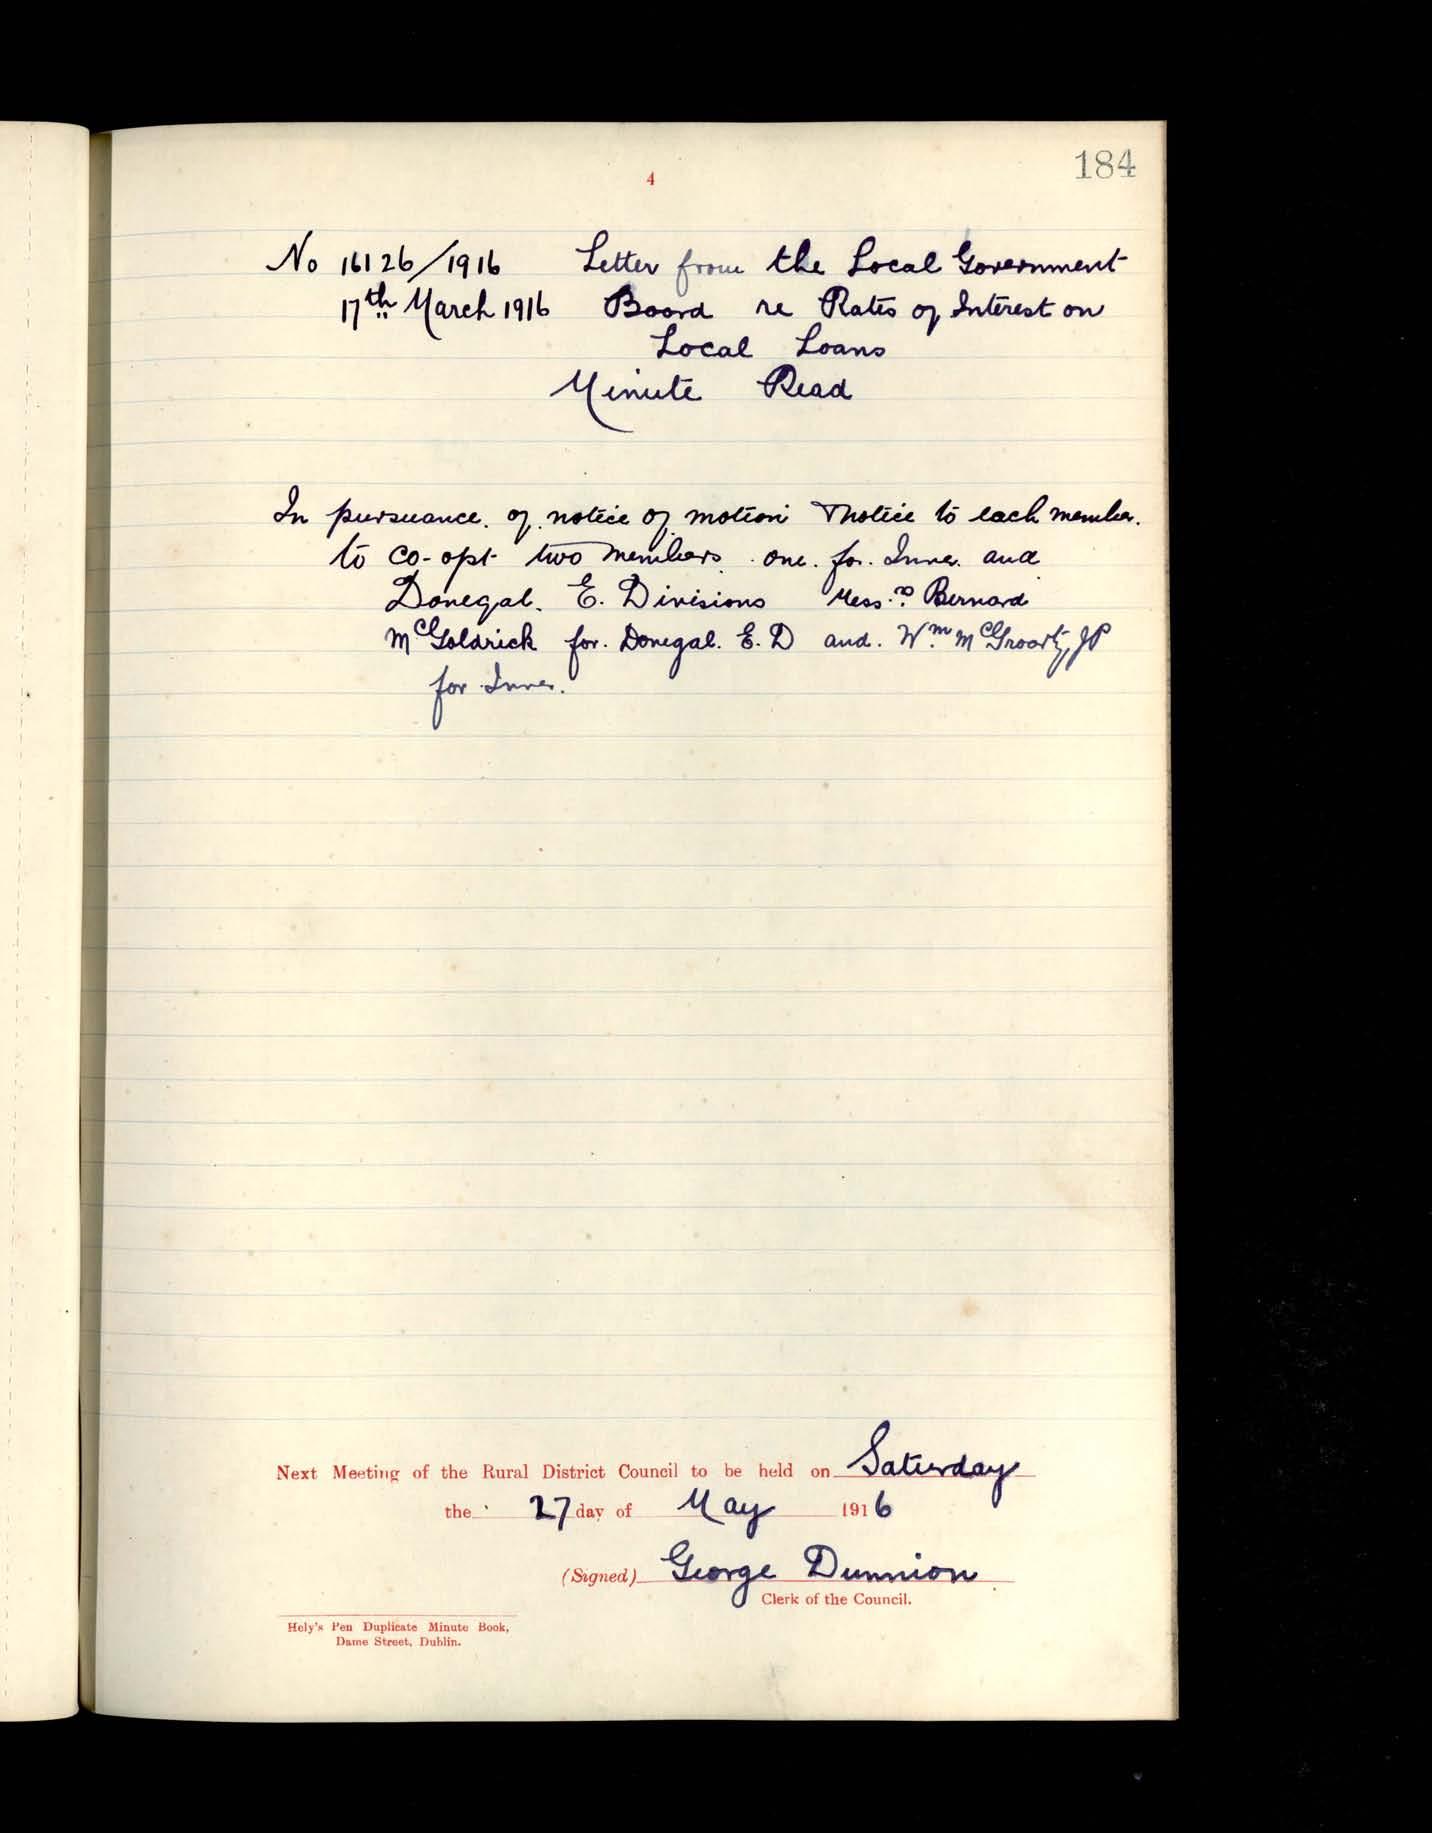 184
4
No 16126/1916 Letter from the Local Government
17th March 1916 Board re Rates of Interest on
Local Loans
Minute Read
In pursuance. of notice of motion & notice to each member.
to co-opt two members. one. for. Inver. and
Donegal. E. Divisions Messrs. Bernard
McGoldrick for. Donegal. E. D and. Wm. McGroarty, JP
for Inver.
Next Meeting of the Rural District Council to be held on Saturday
the 27 day of May 1916
(Signed) George Dunnion
Clerk of the Council.
Hely's Pen Duplicate Minute Book,
Dame Street, Dublin.